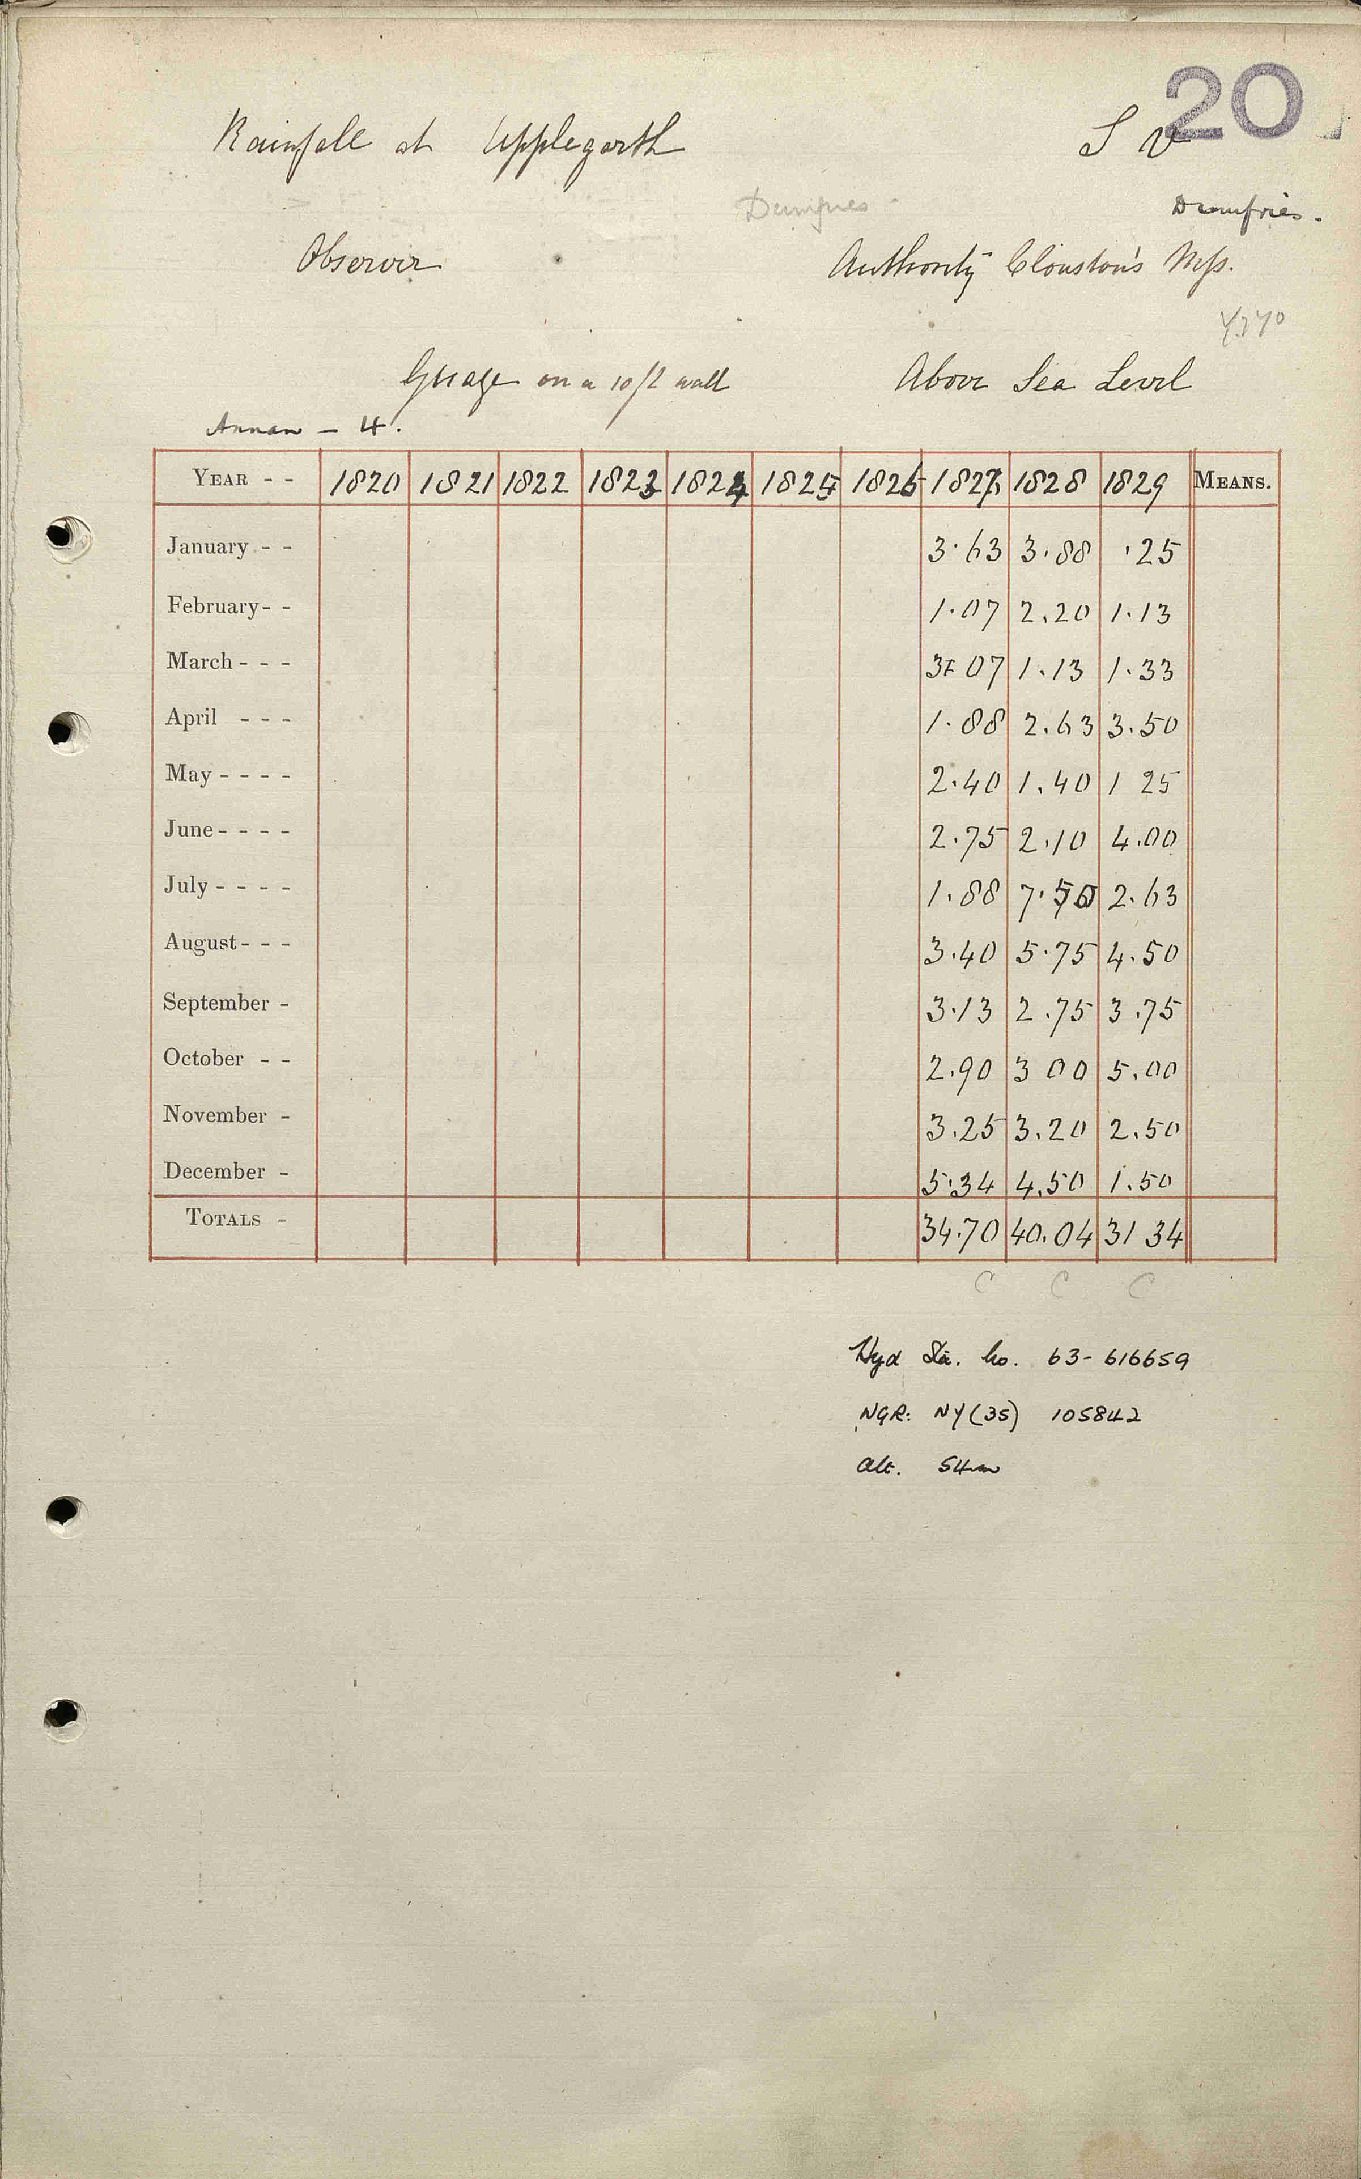 20
Rainfall at Applegarth S V
Dumfries - Dumfries.
Observer Authority Clouston's Mss.
Guage on a 10 ft wall Above Sea Level
Annan - 4.
YEAR - - 1820 1821 1822 1823 1824 1825 1826 1827 1828 1829 MEANS.
January - - 3.63 3.88 .25
February - - 1.07 2.20 1.13
March - - - 3.07 1.13 1.33
April - - - 1.88 2.63 3.50
May - - - - 2.40 1.40 1 25
June - - - - 2.75 2.10 4.00
July - - - - 1.88 7.50 2.63
August - - - 3.40 5.75 4.50
September - 3.13 2.75 3.75
October - - 2.90 3 00 5.00
November - 3.25 3.20 2.50
December - 5.34 4.50 1.50
TOTALS - 34.70 40.04 31 34
C C C
Hyd Sta. No. 63-616659
NGR: NY(35) 105842
Alt. 54m